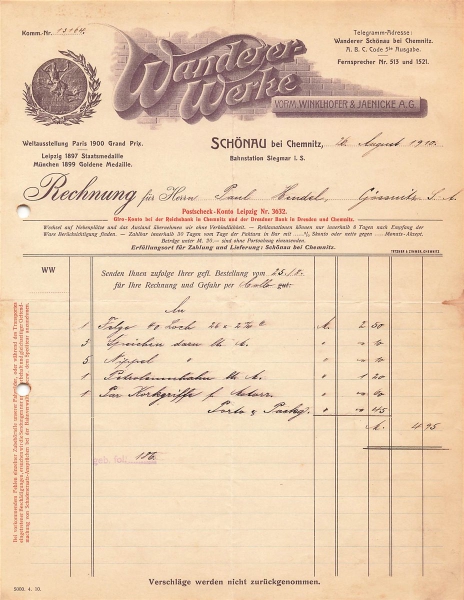 Komm.-Nr. 13184
Wanderer-
Werke
VORM. WINKLHOFER & JAENICKE A.G.
Telegramm-Adresse:
Wanderer Schönau bei Chemnitz.
A. B. C. Code 5te Ausgabe.
Fernsprecher Nr. 513 und 1521.
Weltausstellung Paris 1900 Grand Prix.
Leipzig 1897 Staatsmedaille
München 1899 Goldene Medaille.
SCHÖNAU bei Chemnitz, 26. August 1910.
Bahnstation Siegmar i. S.
Rechnung für Herrn Paul Hendel, Gössnitz S. A.
Postscheck-Konto Leipzig Nr. 3632.
Giro-Konto bei der Reichsbank in Chemnitz und der Dresdner Bank in Dresden und Chemnitz.
Wechsel auf Nebenplätze und das Ausland übernehmen wir ohne Verbindlichkeit. – Reklamationen können nur innerhalb 8 Tagen nach Empfang der
Ware Berücksichtigung finden. – Zahlbar innerhalb 30 Tagen vom Tage der Faktura in bar mit % Skonto oder netto gegen Monats-Akzept.
Beträge unter M. 20.— sind ohne Portoabzug einzusenden.
Erfüllungsort für Zahlung und Lieferung: Schönau bei Chemnitz.
TETZNER & ZIMMER, CHEMNITZ
WW
Senden Ihnen zufolge Ihrer gefl. Bestellung vom 25./8.
für Ihre Rechnung und Gefahr per Collo
An
1 Felge 40 Loch 26 x 2 M. 2 50
3 Speichen dazu " " 10
5 Nippel " " " 10
1 Petroleumhahn " 1 20
1 Par Korkgriffe f. " " 60
Porto & Packg. " " 45
M. 4.95
186
Bei vorkommendem Fehlen einzelner Zubehörteile unserer Fahrräder, oder während des Transportes
Verschläge werden nicht zurückgenommen.
5000. 4. 10.